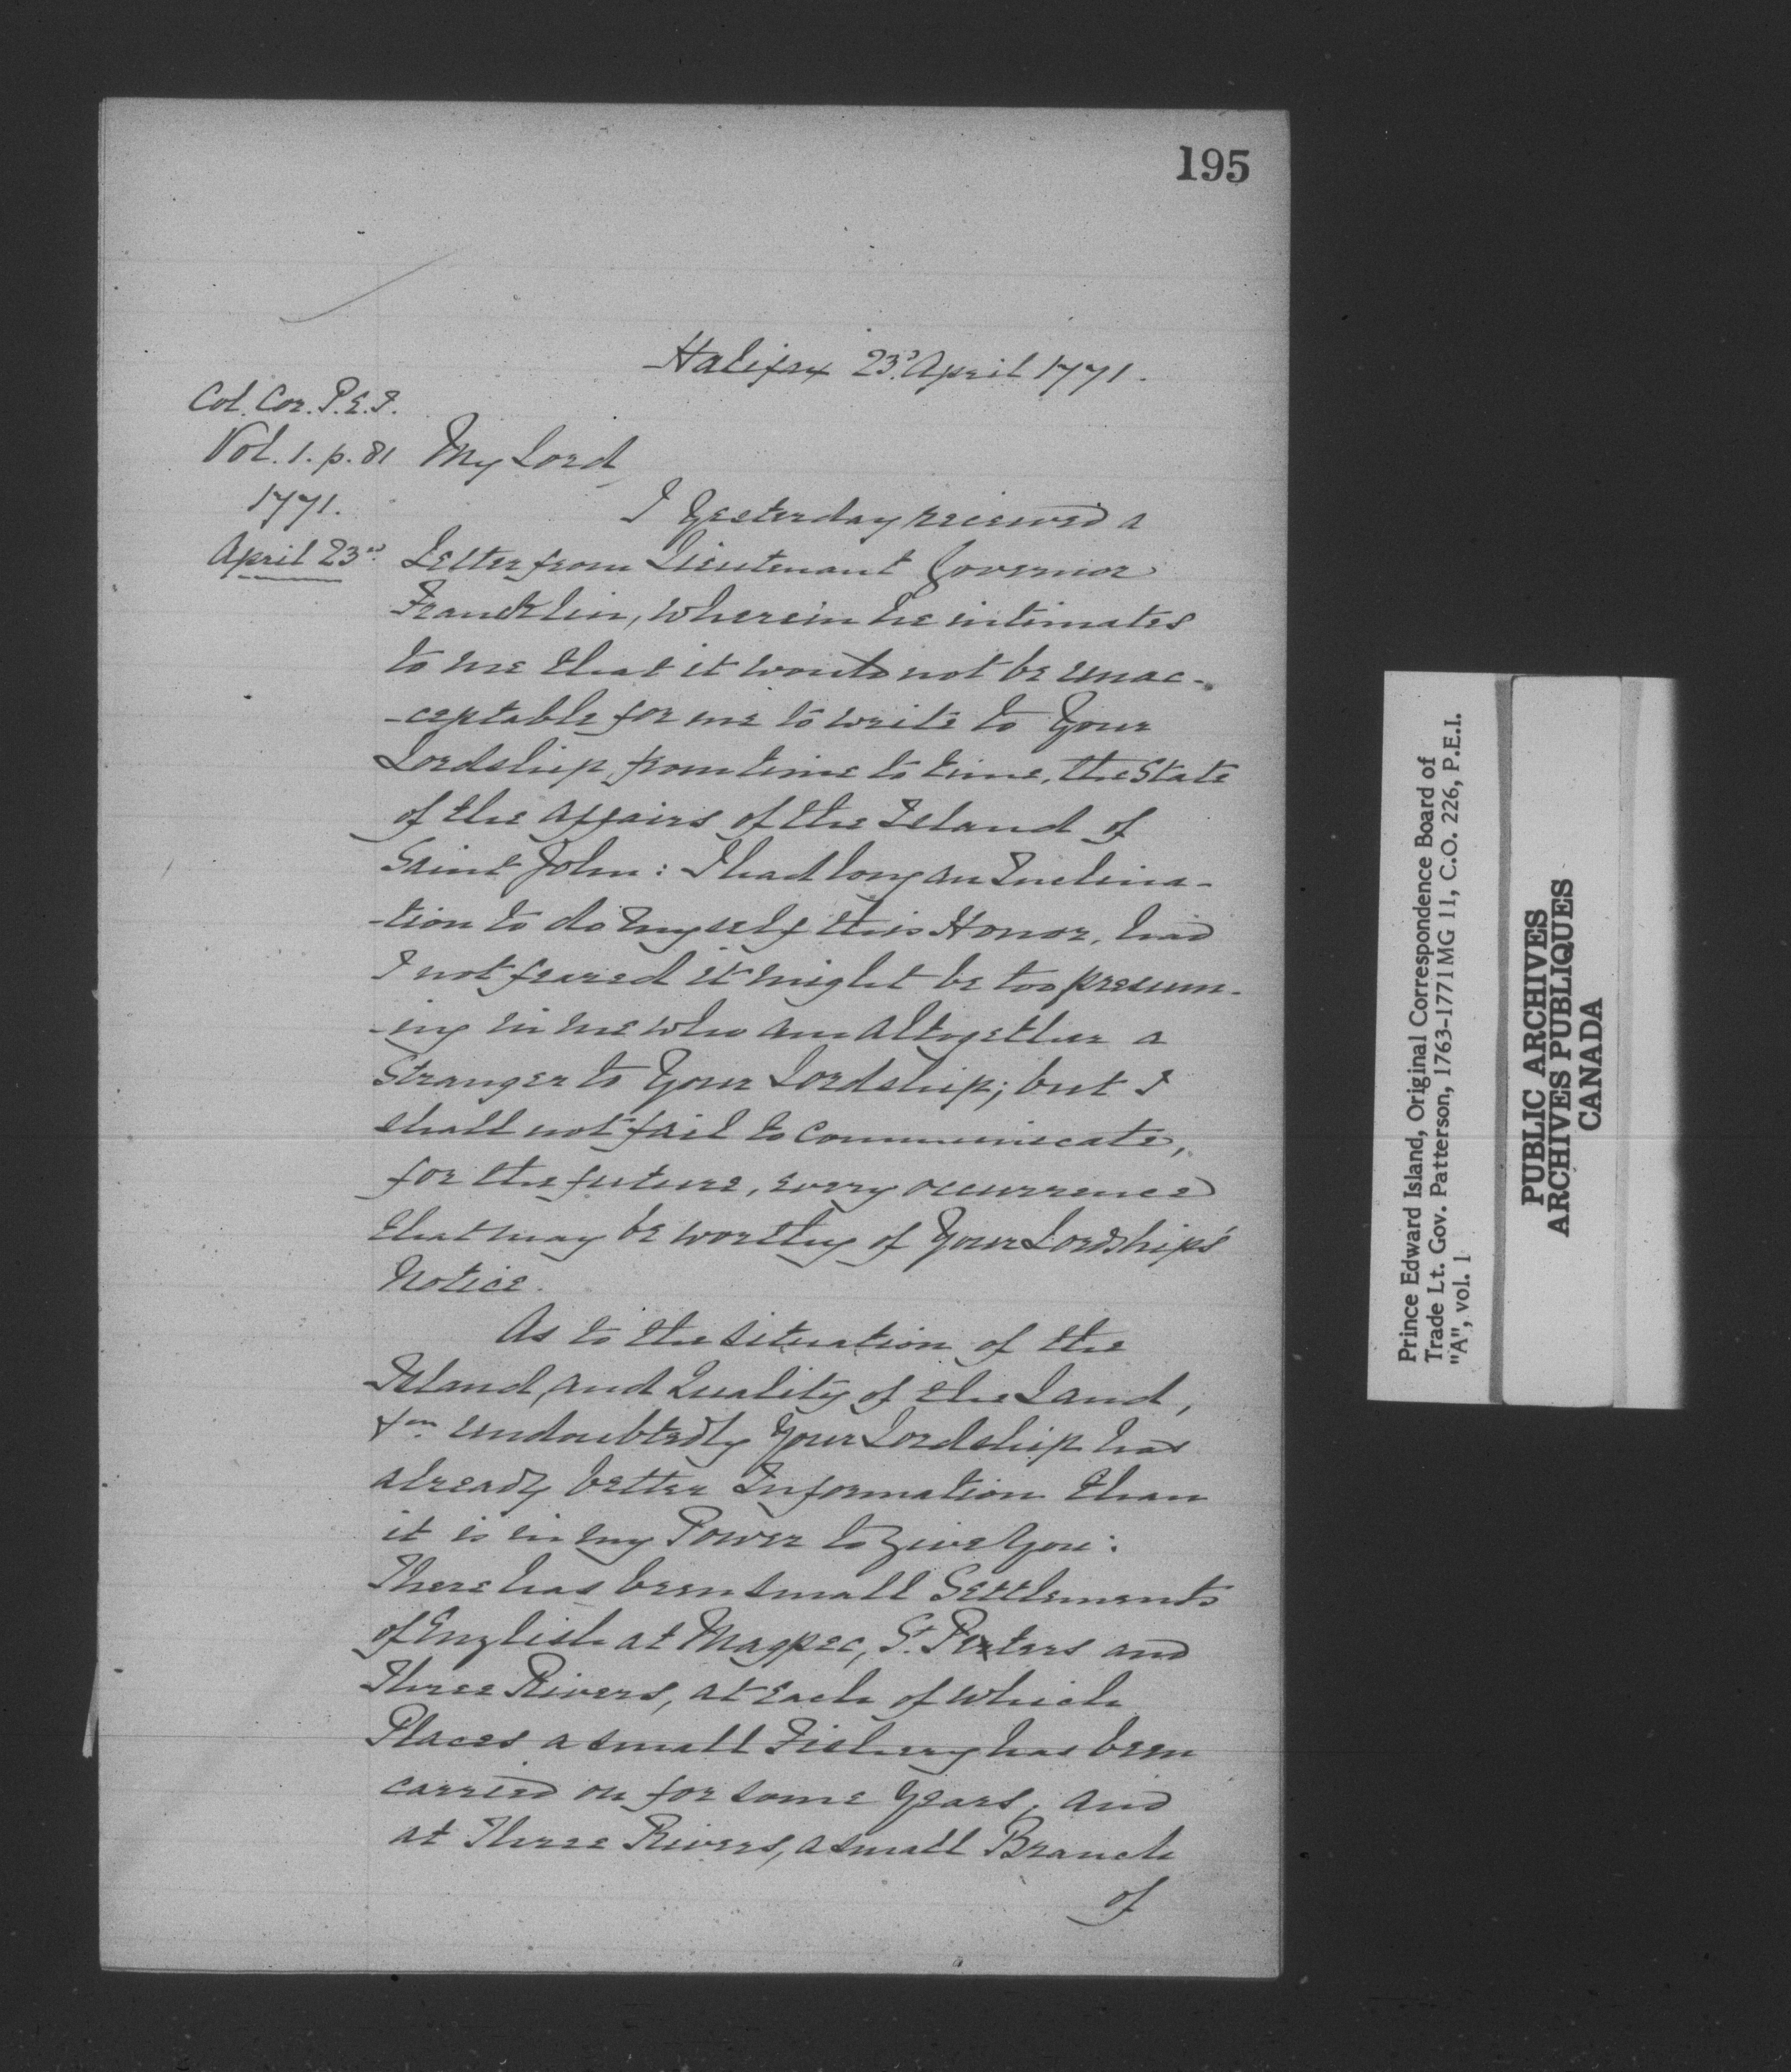 195
Halifax 23.d April 1771.
Col. Cor. P.E.I.
Vol. 1. p. 81
1771.
April 23rd
My Lord,
I Yesterday received a
Letter from Lieutenant Governor
Francklin, wherein he intimates
to me that it would not be unac-
-ceptable for me to write to Your
Lordship, from time to time, the State
of the Affairs of the Island of
Saint John: I had long an Inclina-
-tion to do myself this Honor, had
I not feared it might be too presum-
-ing in me who am altogether a
Stranger to Your Lordship; but I
shall not fail to communicate,
for the future, every occurrence
that may be worthy of Your Lordship's
Notice.
As to the situation of the
Island, and Quality of the Land,
undoubtedly Your Lordship has
already better Information than
it is in my Power to give You:
There has been small Settlements
of English at Magpec, St. Peters and
Three Rivers, at each of which
Places a small Fishery has been
carried on for some Years, and
at Three Rivers, a small Branch
of
Prince Edward Island, Original Correspondence Board of
Trade Lt. Gov. Patterson, 1763-1771 MG 11, C.O. 226, P.E.I.
"A", vol. 1
PUBLIC ARCHIVES
ARCHIVES PUBLIQUES
CANADA